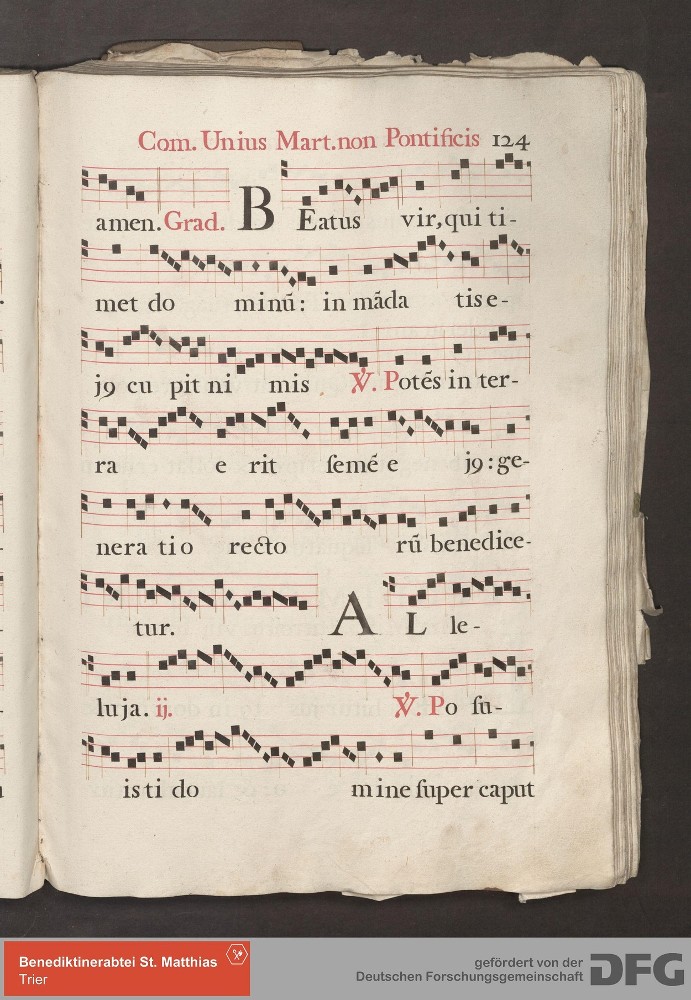 Com. Unius Mart. non Pontificis 124
amen. Grad. BEatus vir, qui ti-
met do minū: in māda tis e-
j9 cu pit ni mis ℣. Potēs in ter-
ra e rit ſemé e j9: ge-
nera tio recto rū benedice-
tur. AL le-
luja. ij. ℣. Po ſu-
isti do mine ſuper caput
Benediktinerabtei St. Matthias
Trier
gefördert von der
Deutschen Forschungsgemeinschaft
DFG